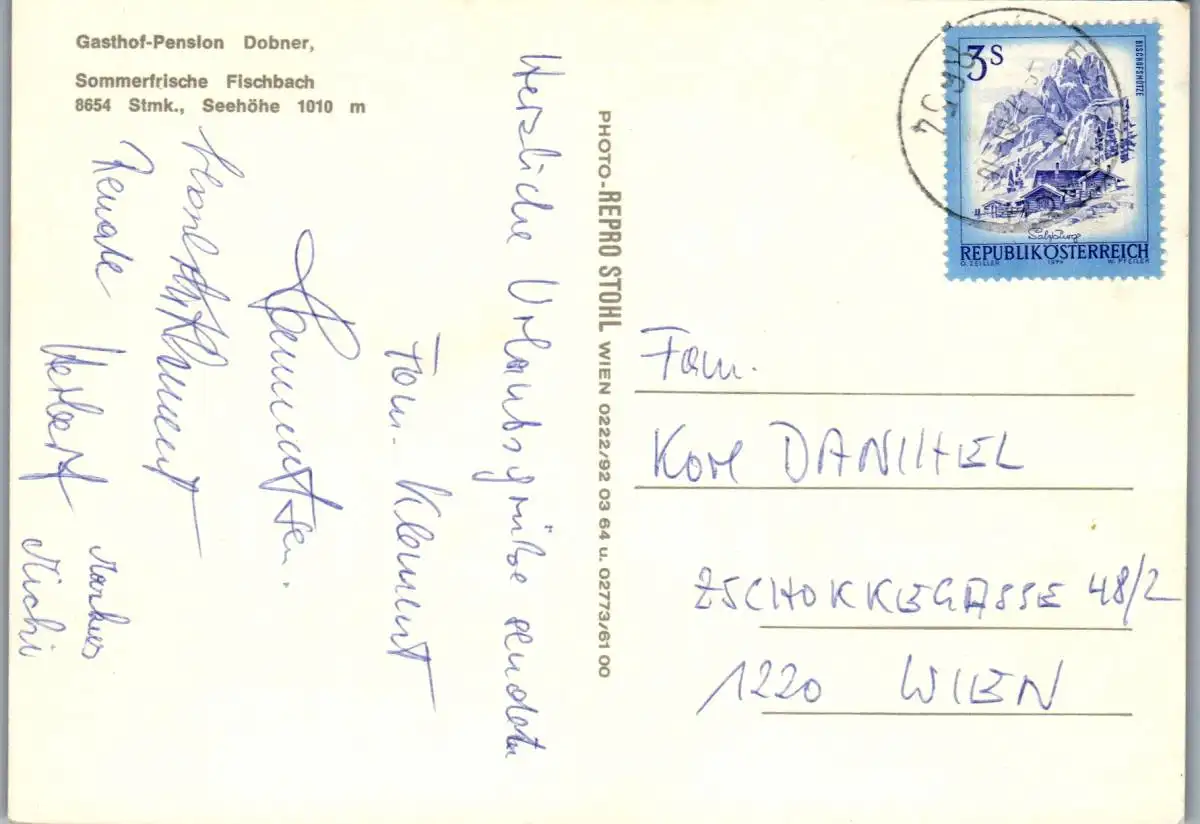 Gasthof-Pension Dobner,
Sommerfrische Fischbach
8654 Stmk., Seehöhe 1010 m
Herzliche Urlaubsgrüße sendet
Fam. Klement
Renate
Herbert
Markus
Michi
PHOTO-REPRO STOHL WIEN 0222/92 03 64 u. 02773/61 00
8654
3S
BISCHOFSMÜTZE
Salzburg
REPUBLIK ÖSTERREICH
O. ZEILLER 1974 W. PFEILER
Fam.
Karl DANIHEL
ZSCHOKKEGASSE 48/2
1220 WIEN